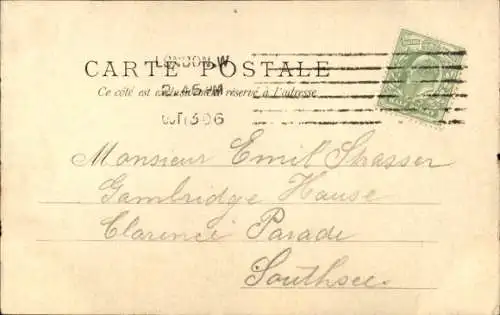 LONDON.W
CARTE POSTALE
2.45PM
Ce côté est exclusivement réservé à l'adresse
OCT 3 06
Monsieur Emil Strasser
Gambridge House
Clarence Parade
Southsee